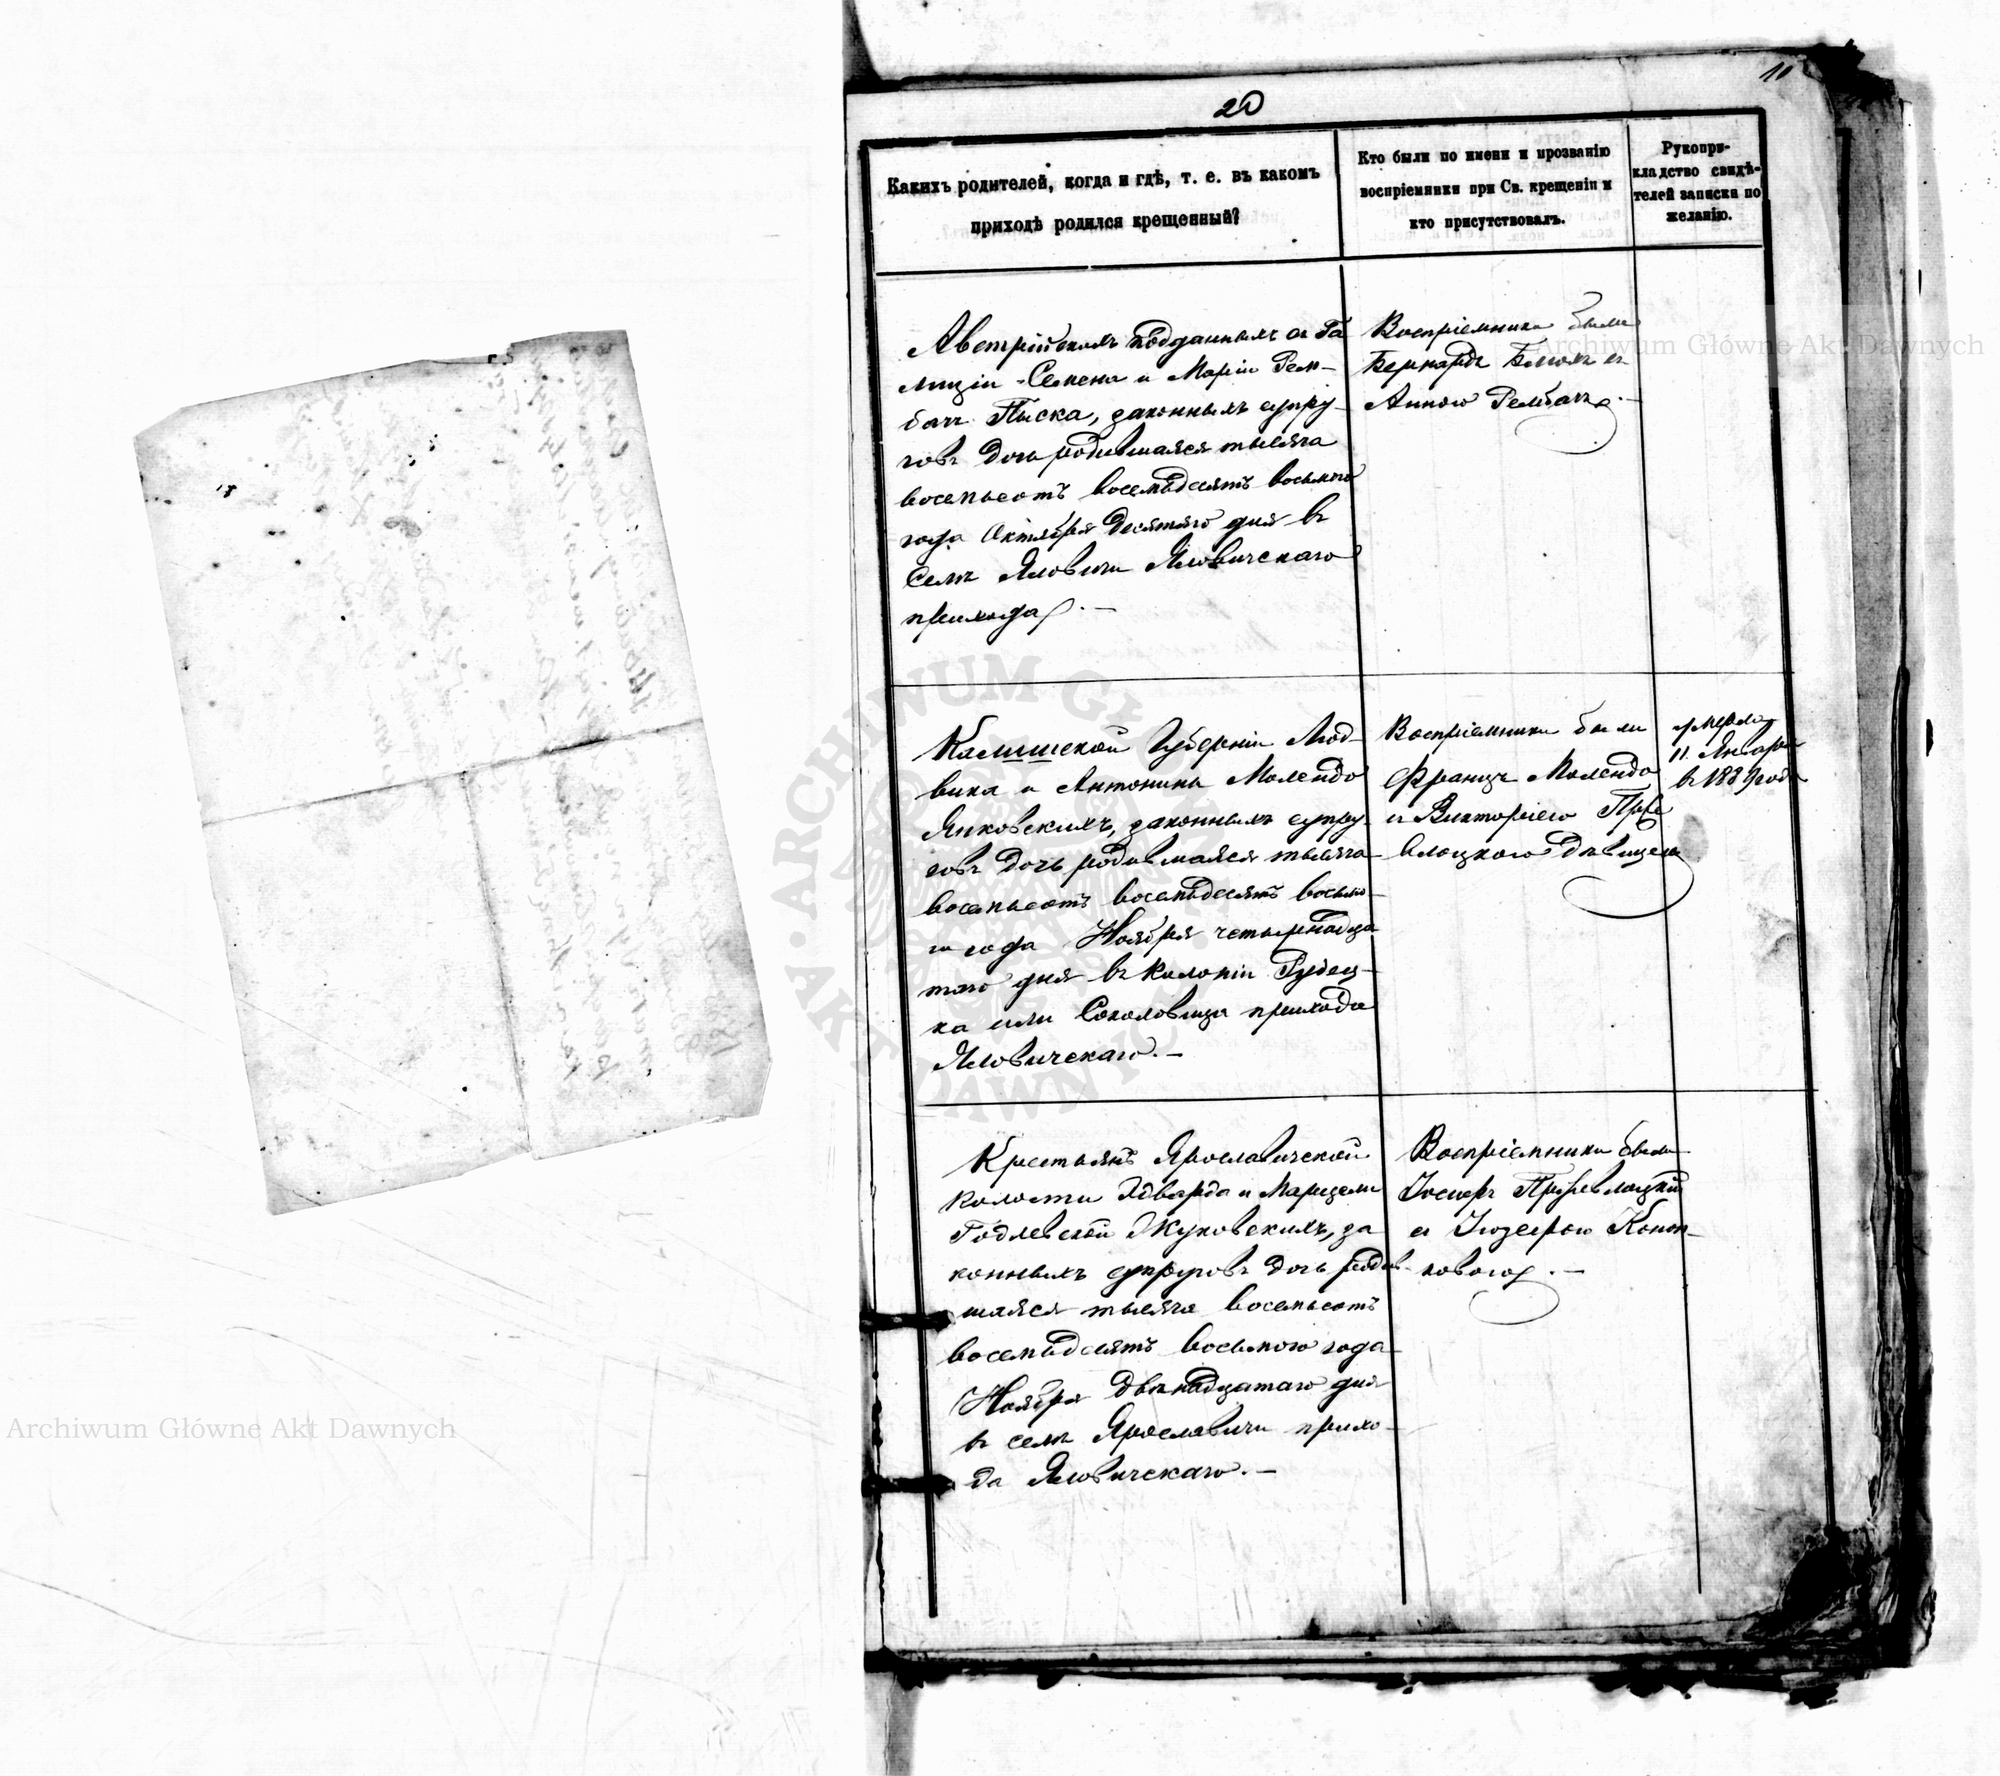 10
20
Какихъ родителей, когда и гдѣ, т. е. въ какомъ
приходѣ родился крещенный?
Кто были по имени и прозванію
воспріемники при Св. крещеніи и
кто присутствовалъ.
Рукопри-
кладство свидѣ-
телей записки по
желанію.
Австрійскихъ подданныхъ съ Га
лиціи Семена и Маріи Рем-
бачъ Пыска, законныхъ супру-
говъ дочь родившаяся тысяча
восемьсотъ восемьдесятъ восьмого
года Октября десятаго дня въ
селѣ Яловичи Яловичскаго
прихода. —
Воспріемники были
Бернардъ Блюмъ съ
Анною Рембачъ. —
Калишской Губерніи Люд-
вика и Антонины Молендо
Янковскихъ, законныхъ супру-
говъ дочь родившаяся тысяча
восемьсотъ восемьдесятъ восьмо-
го года Ноября четырнадца
таго дня въ Колоніи Рудец-
ка или Соколовщиза прихода
Яловичскаго. —
Воспріемники были
Францъ Молендо
съ Викторіею Прже
влоцкою дѣвицею
умерла
11 Января
1889 года
Крестьянъ Ярославичской
волости Эдварда и Марцели
Годлевской Жуковскихъ, за
конныхъ супруговъ дочь родив-
шаяся тысяча восемьсотъ
восемьдесятъ восьмого года
Ноября двѣнадцатаго дня
въ селѣ Ярославичи прихо-
да Яловичскаго. —
Воспріемники были
Іосифъ Пржевлоцкій
съ Іозефою Коноп-
ковою. —
Archiwum Główne Akt Dawnych
Archiwum Główne Akt Dawnych